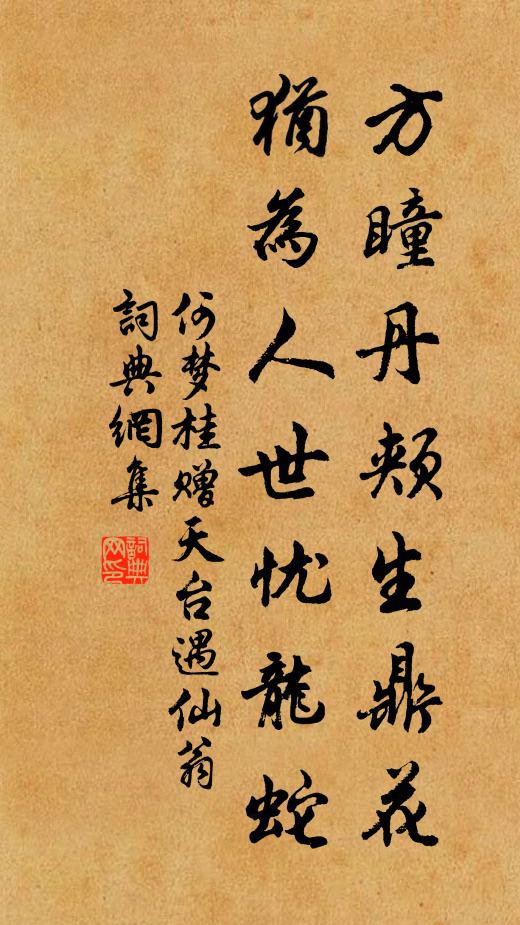 方瞳丹颊生鼎花
猶為人世忧龍蛇
何梦桂赠天台遇仙翁
詞典網集
詞典網印